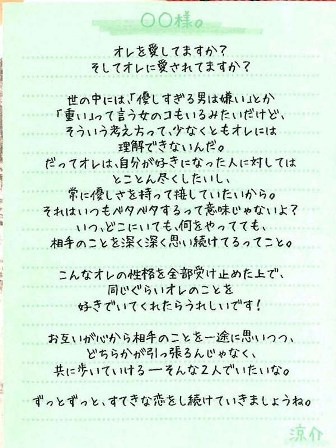 ○○様。
オレを愛してますか？
そしてオレに愛されてますか？
世の中には、「優しすぎる男は嫌い」とか
「重い」って言う女のコもいるみたいだけど、
そういう考え方って、少なくともオレには
理解できないんだ。
だってオレは、自分が好きになった人に対しては
とことん尽くしたいし、
常に優しさを持って接していたいから。
それはいつもベタベタするって意味じゃないよ？
いつ、どこにいても、何をやってても、
相手のことを深く深く思い続けてるってこと。
こんなオレの性格を全部受け止めた上で、
同じぐらいオレのことを
好きでいてくれたらうれしいです！
お互いが心から相手のことを一途に思いつつ、
どちらかが引っ張るんじゃなく、
共に歩いていける―そんな2人でいたいな。
ずっとずっと、すてきな恋をし続けていきましょうね。
涼介